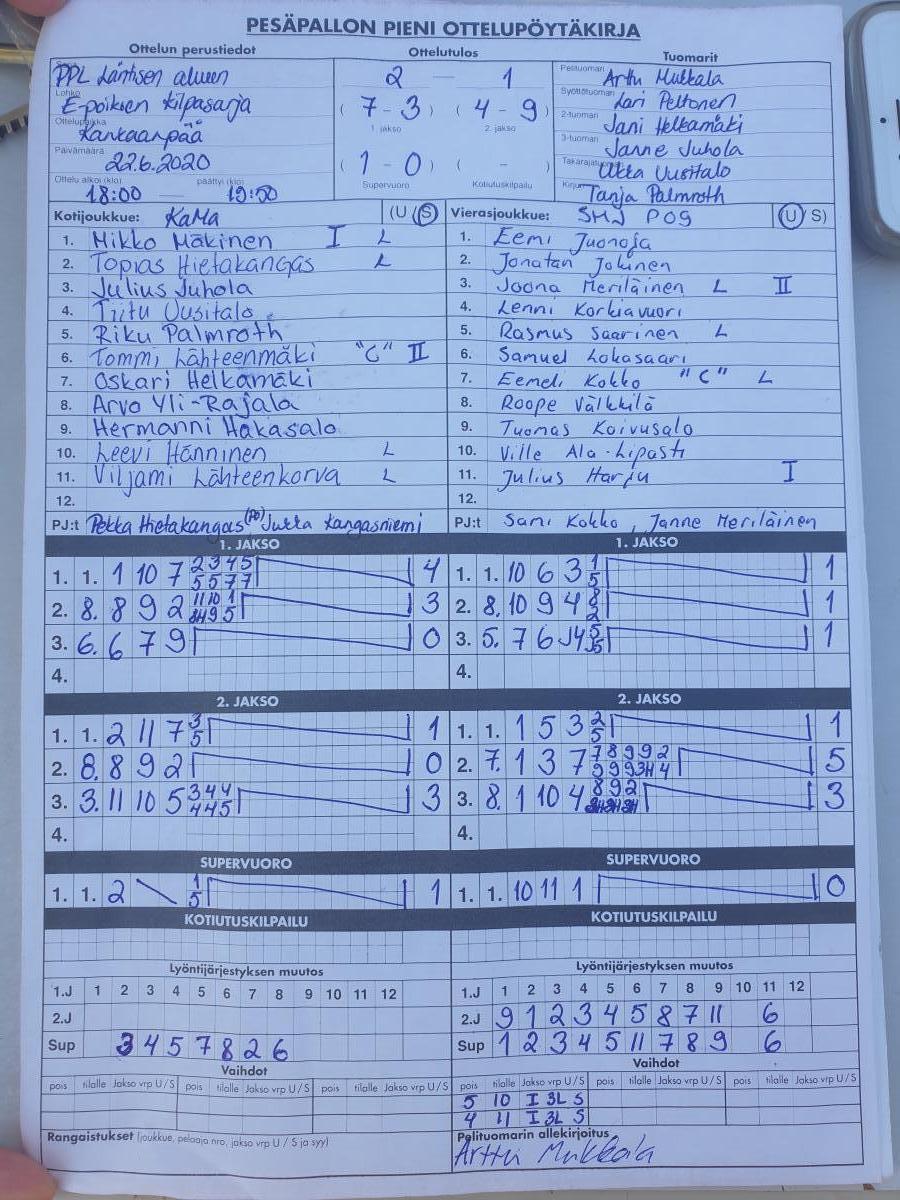 PESÄPALLON PIENI OTTELUPÖYTÄKIRJA
Ottelun perustiedot Ottelutulos Tuomarit
PPL Läntisen alueen 2 — 1 Pelituomari Arttu Mukkala
Lohko E-poikien kilpasarja (7 - 3) (4 - 9) Syöttötuomari Lari Peltonen
1. jakso 2. jakso
Ottelupaikka Kankaanpää 2-tuomari Jani Helkamäki
Päivämäärä 22.6.2020 (1 - 0) ( - ) 3-tuomari Janne Juhola
Supervuoro Kotiutuskilpailu Takarajatuomari Uusitalo
Ottelu alkoi (klo) 18:00 päättyi (klo) 19:50 Kirjuri Tanja Palmroth
Kotijoukkue: KaMa (U S) Vierasjoukkue: SMJ POG (U S)
1. Mikko Mäkinen I L 1. Eemi Juonoja
2. Topias Hietakangas L 2. Jonatan Jokinen
3. Julius Juhola 3. Joona Meriläinen L II
4. Tiitu Uusitalo 4. Lenni Korkiavuori
5. Riku Palmroth 5. Rasmus Saarinen L
6. Tommi Lähteenmäki "C" II 6. Samuel Lokasaari
7. Oskari Helkamäki 7. Eemeli Kokko "C" L
8. Arvo Yli-Rajala 8. Roope Välkkilä
9. Hermanni Hakasalo 9. Tuomas Koivusalo
10. Leevi Hänninen L 10. Ville Ala-Lipasti
11. Viljami Lähteenkorva L 11. Julius Harju I
12. 12.
PJ:t Pekka Hietakangas Jukka Kangasniemi PJ:t Sami Kokko, Janne Meriläinen
1. JAKSO 1. JAKSO
1. 1. 1 10 7 2 3 4 5 4 1. 1. 10 6 3 1 1
5 5 7 7 5
2. 8. 8 9 2 11 10 1 3 2. 8. 10 9 4 8 1
9 5 2
3. 6. 6 7 9 0 3. 5. 7 6 5 1
4. 4.
2. JAKSO 2. JAKSO
1. 1. 2 11 7 3 1 1. 1. 1 5 3 2 1
5 5
2. 8. 8 9 2 0 2. 7. 1 3 7 7 8 9 9 2 5
9 9 9 3H 4
3. 3. 11 10 5 3 4 4 3 3. 8. 1 10 4 8 9 2 3
4 4 5
4. 4.
SUPERVUORO SUPERVUORO
1. 1. 2 1 1 1. 1. 10 11 1 0
5
KOTIUTUSKILPAILU KOTIUTUSKILPAILU
Lyöntijärjestyksen muutos Lyöntijärjestyksen muutos
1.J 1 2 3 4 5 6 7 8 9 10 11 12 1.J 1 2 3 4 5 6 7 8 9 10 11 12
2.J 2.J 9 1 2 3 4 5 8 7 11 6
Sup 3 4 5 7 8 2 6 Sup 1 2 3 4 5 11 7 8 9 6
Vaihdot Vaihdot
pois tilalle Jakso vrp U/S pois tilalle Jakso vrp U/S pois tilalle Jakso vrp U/S pois tilalle Jakso vrp U/S pois tilalle Jakso vrp U/S pois tilalle Jakso vrp U/S
5 10 I 3L S
4 11 I 3L S
Rangaistukset (joukkue, pelaaja nro, jakso vrp U / S ja syy) Pelituomarin allekirjoitus
Arttu Mukkala